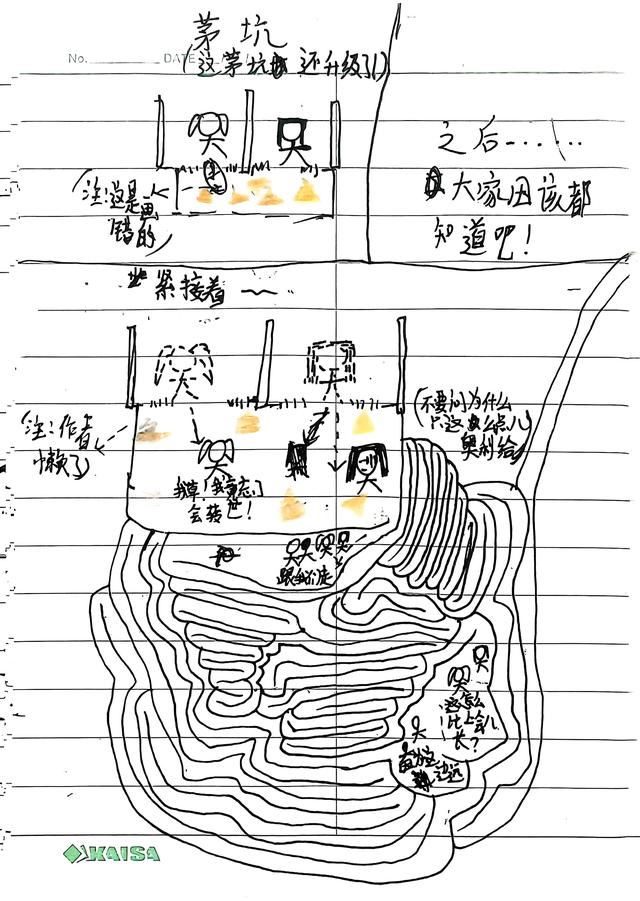 No.
DATE
茅坑
(这茅坑还升级了!)
注:这是画
错的
之后……
大家因该都
知道吧!
紧接着~
注:作者
懒了
(不要问为什么
只这么点儿
奥利给)
我草!我竟忘了
会转世!
跟我
这怎么
比上会儿
长?
KAISA